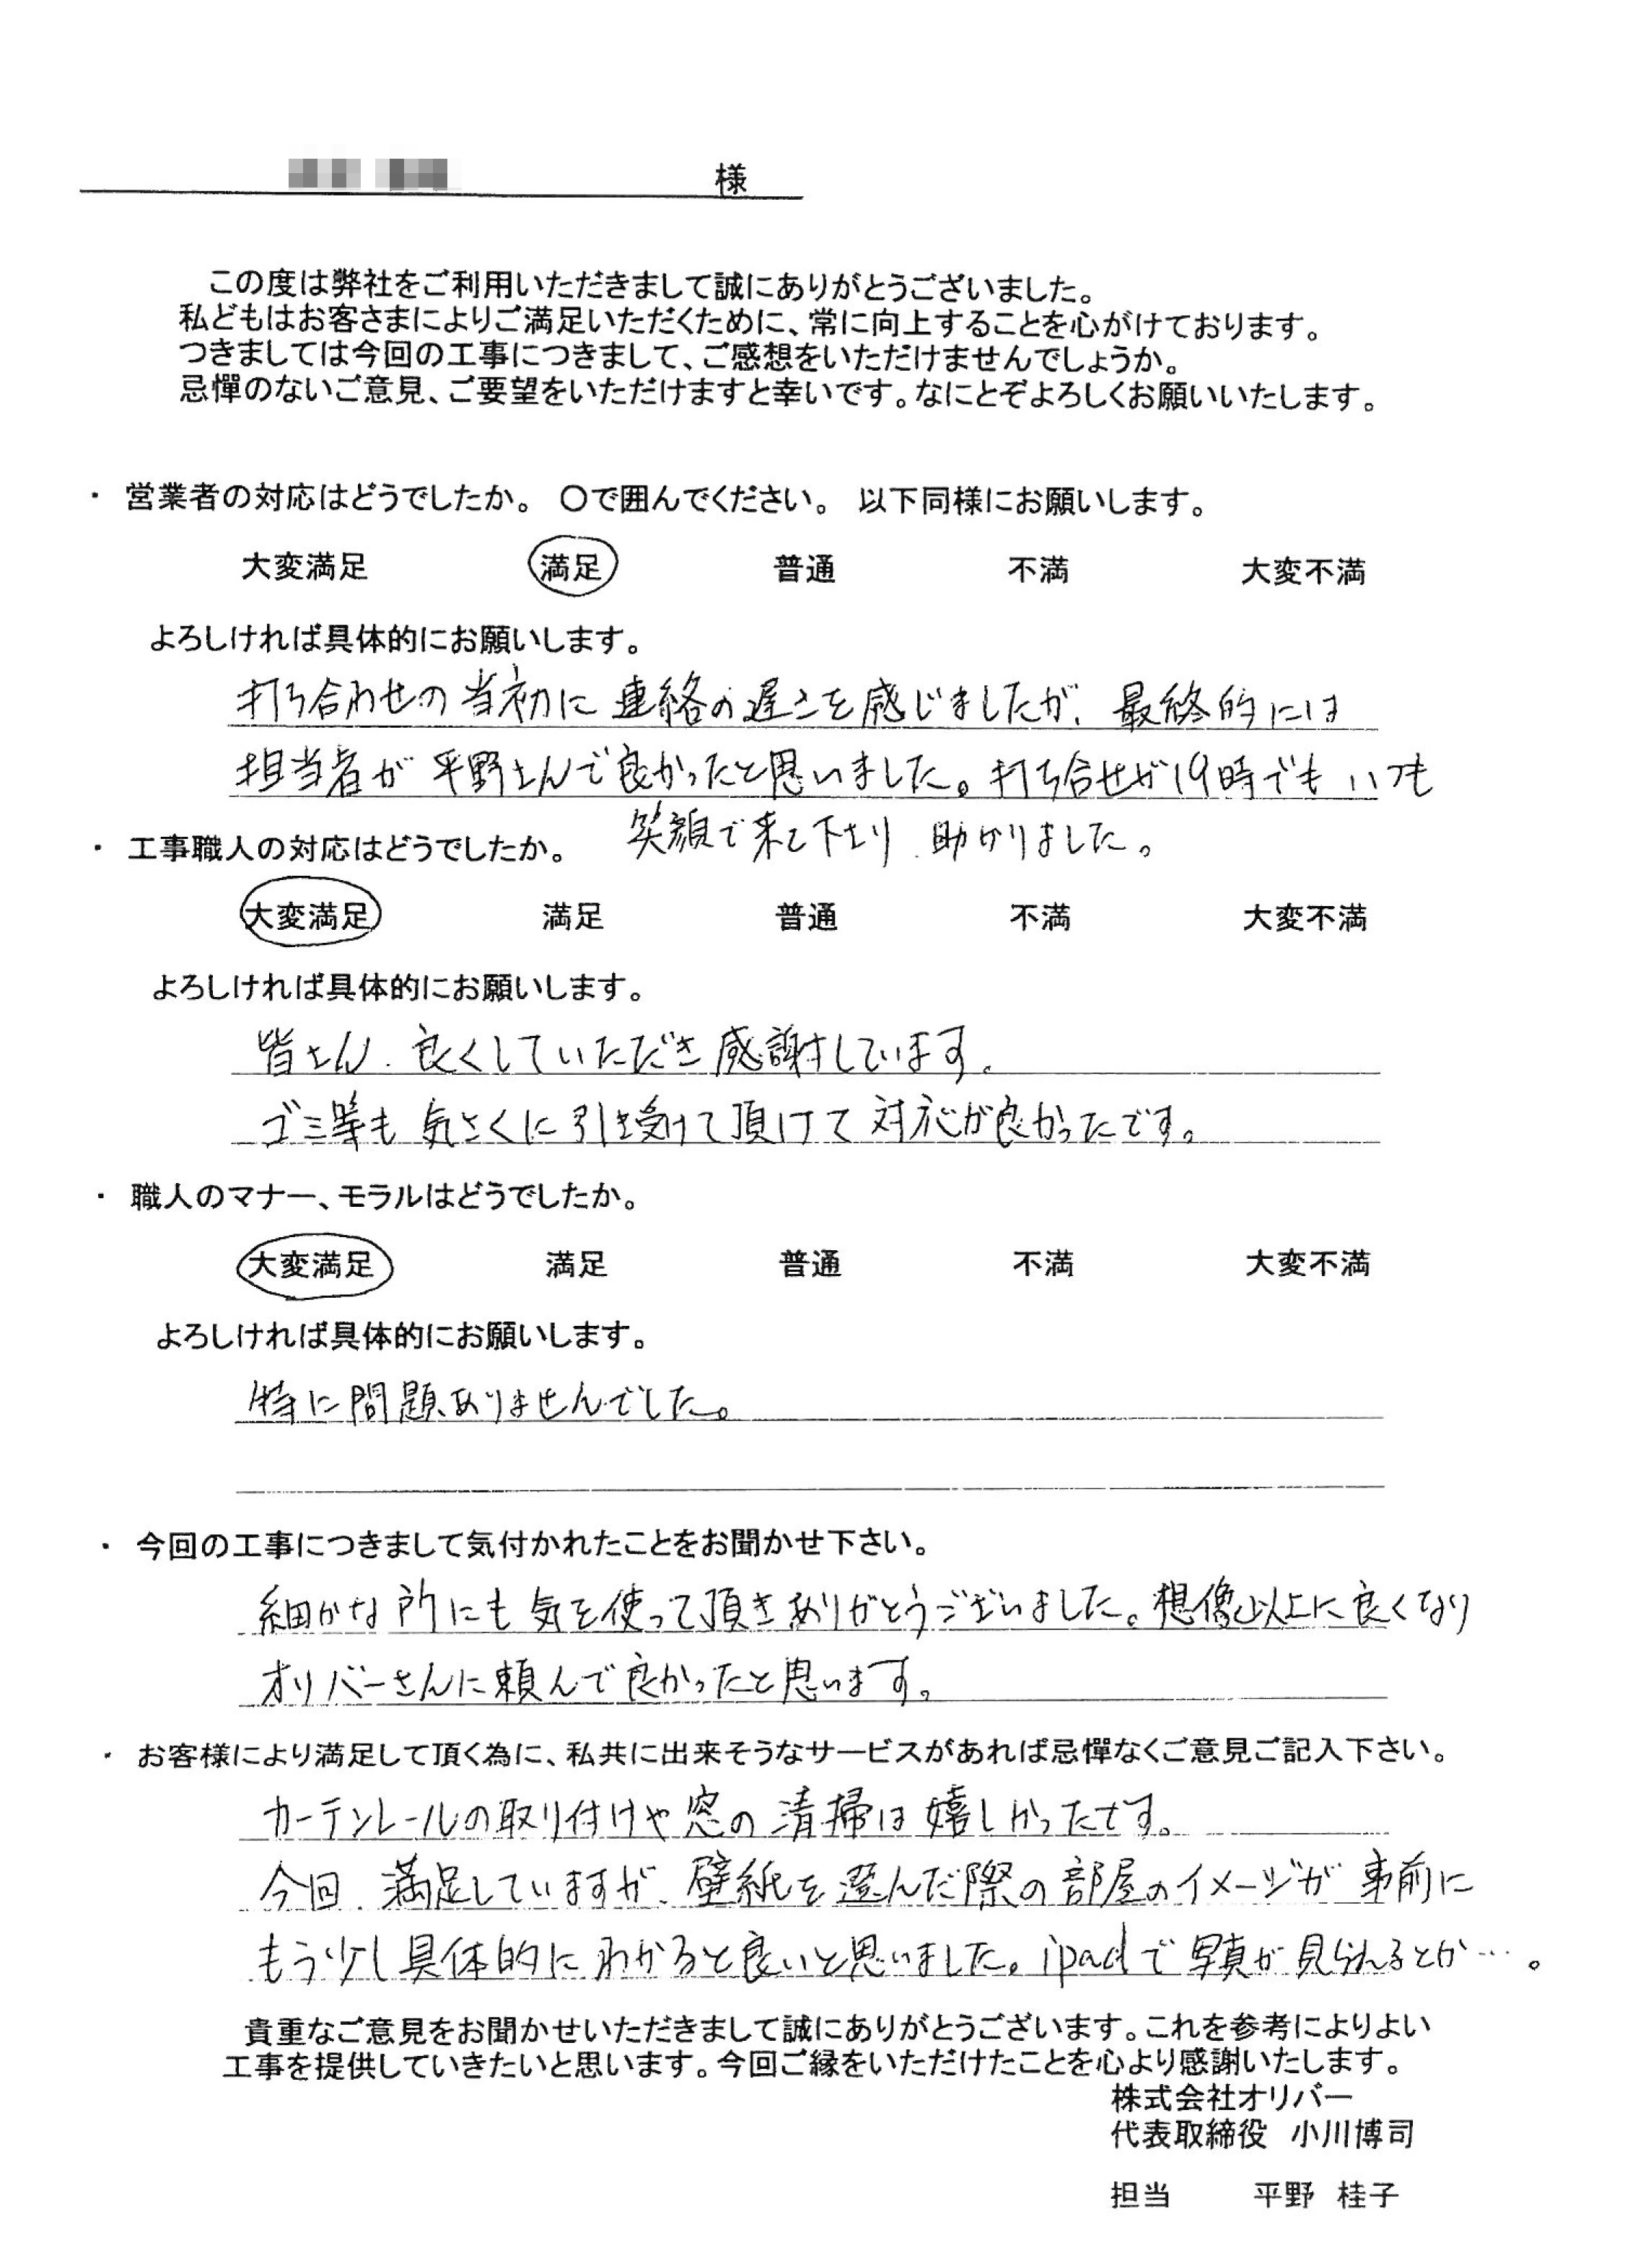 様
この度は弊社をご利用いただきまして誠にありがとうございました。
私どもはお客さまによりご満足いただくために、常に向上することを心がけております。
つきましては今回の工事につきまして、ご感想をいただけませんでしょうか。
忌憚のないご意見、ご要望をいただけますと幸いです。なにとぞよろしくお願いいたします。
・ 営業者の対応はどうでしたか。 〇で囲んでください。 以下同様にお願いします。
大変満足 満足 普通 不満 大変不満
よろしければ具体的にお願いします。
打ち合わせの当初に連絡の遅さを感じましたが、最終的には
担当者が平野さんで良かったと思いました。打ち合せが19時でもいつも
笑顔で来て下さり、助かりました。
・ 工事職人の対応はどうでしたか。
大変満足 満足 普通 不満 大変不満
よろしければ具体的にお願いします。
皆さん、良くしていただき感謝しています。
ゴミ等も気さくに引き受けて頂けて対応が良かったです。
・ 職人のマナー、モラルはどうでしたか。
大変満足 満足 普通 不満 大変不満
よろしければ具体的にお願いします。
特に問題ありませんでした。
・ 今回の工事につきまして気付かれたことをお聞かせ下さい。
細かな所にも気を使って頂きありがとうございました。想像以上に良くなり
オリバーさんに頼んで良かったと思います。
・ お客様により満足して頂く為に、私共に出来そうなサービスがあれば忌憚なくご意見ご記入下さい。
カーテンレールの取り付けや窓の清掃は嬉しかったです。
今回、満足していますが、壁紙を選んだ際の部屋のイメージが事前に
もう少し具体的にわかると良いと思いました。ipadで写真が見られるとか…。
貴重なご意見をお聞かせいただきまして誠にありがとうございます。これを参考によりよい
工事を提供していきたいと思います。今回ご縁をいただけたことを心より感謝いたします。
株式会社オリバー
代表取締役 小川博司
担当 平野 桂子